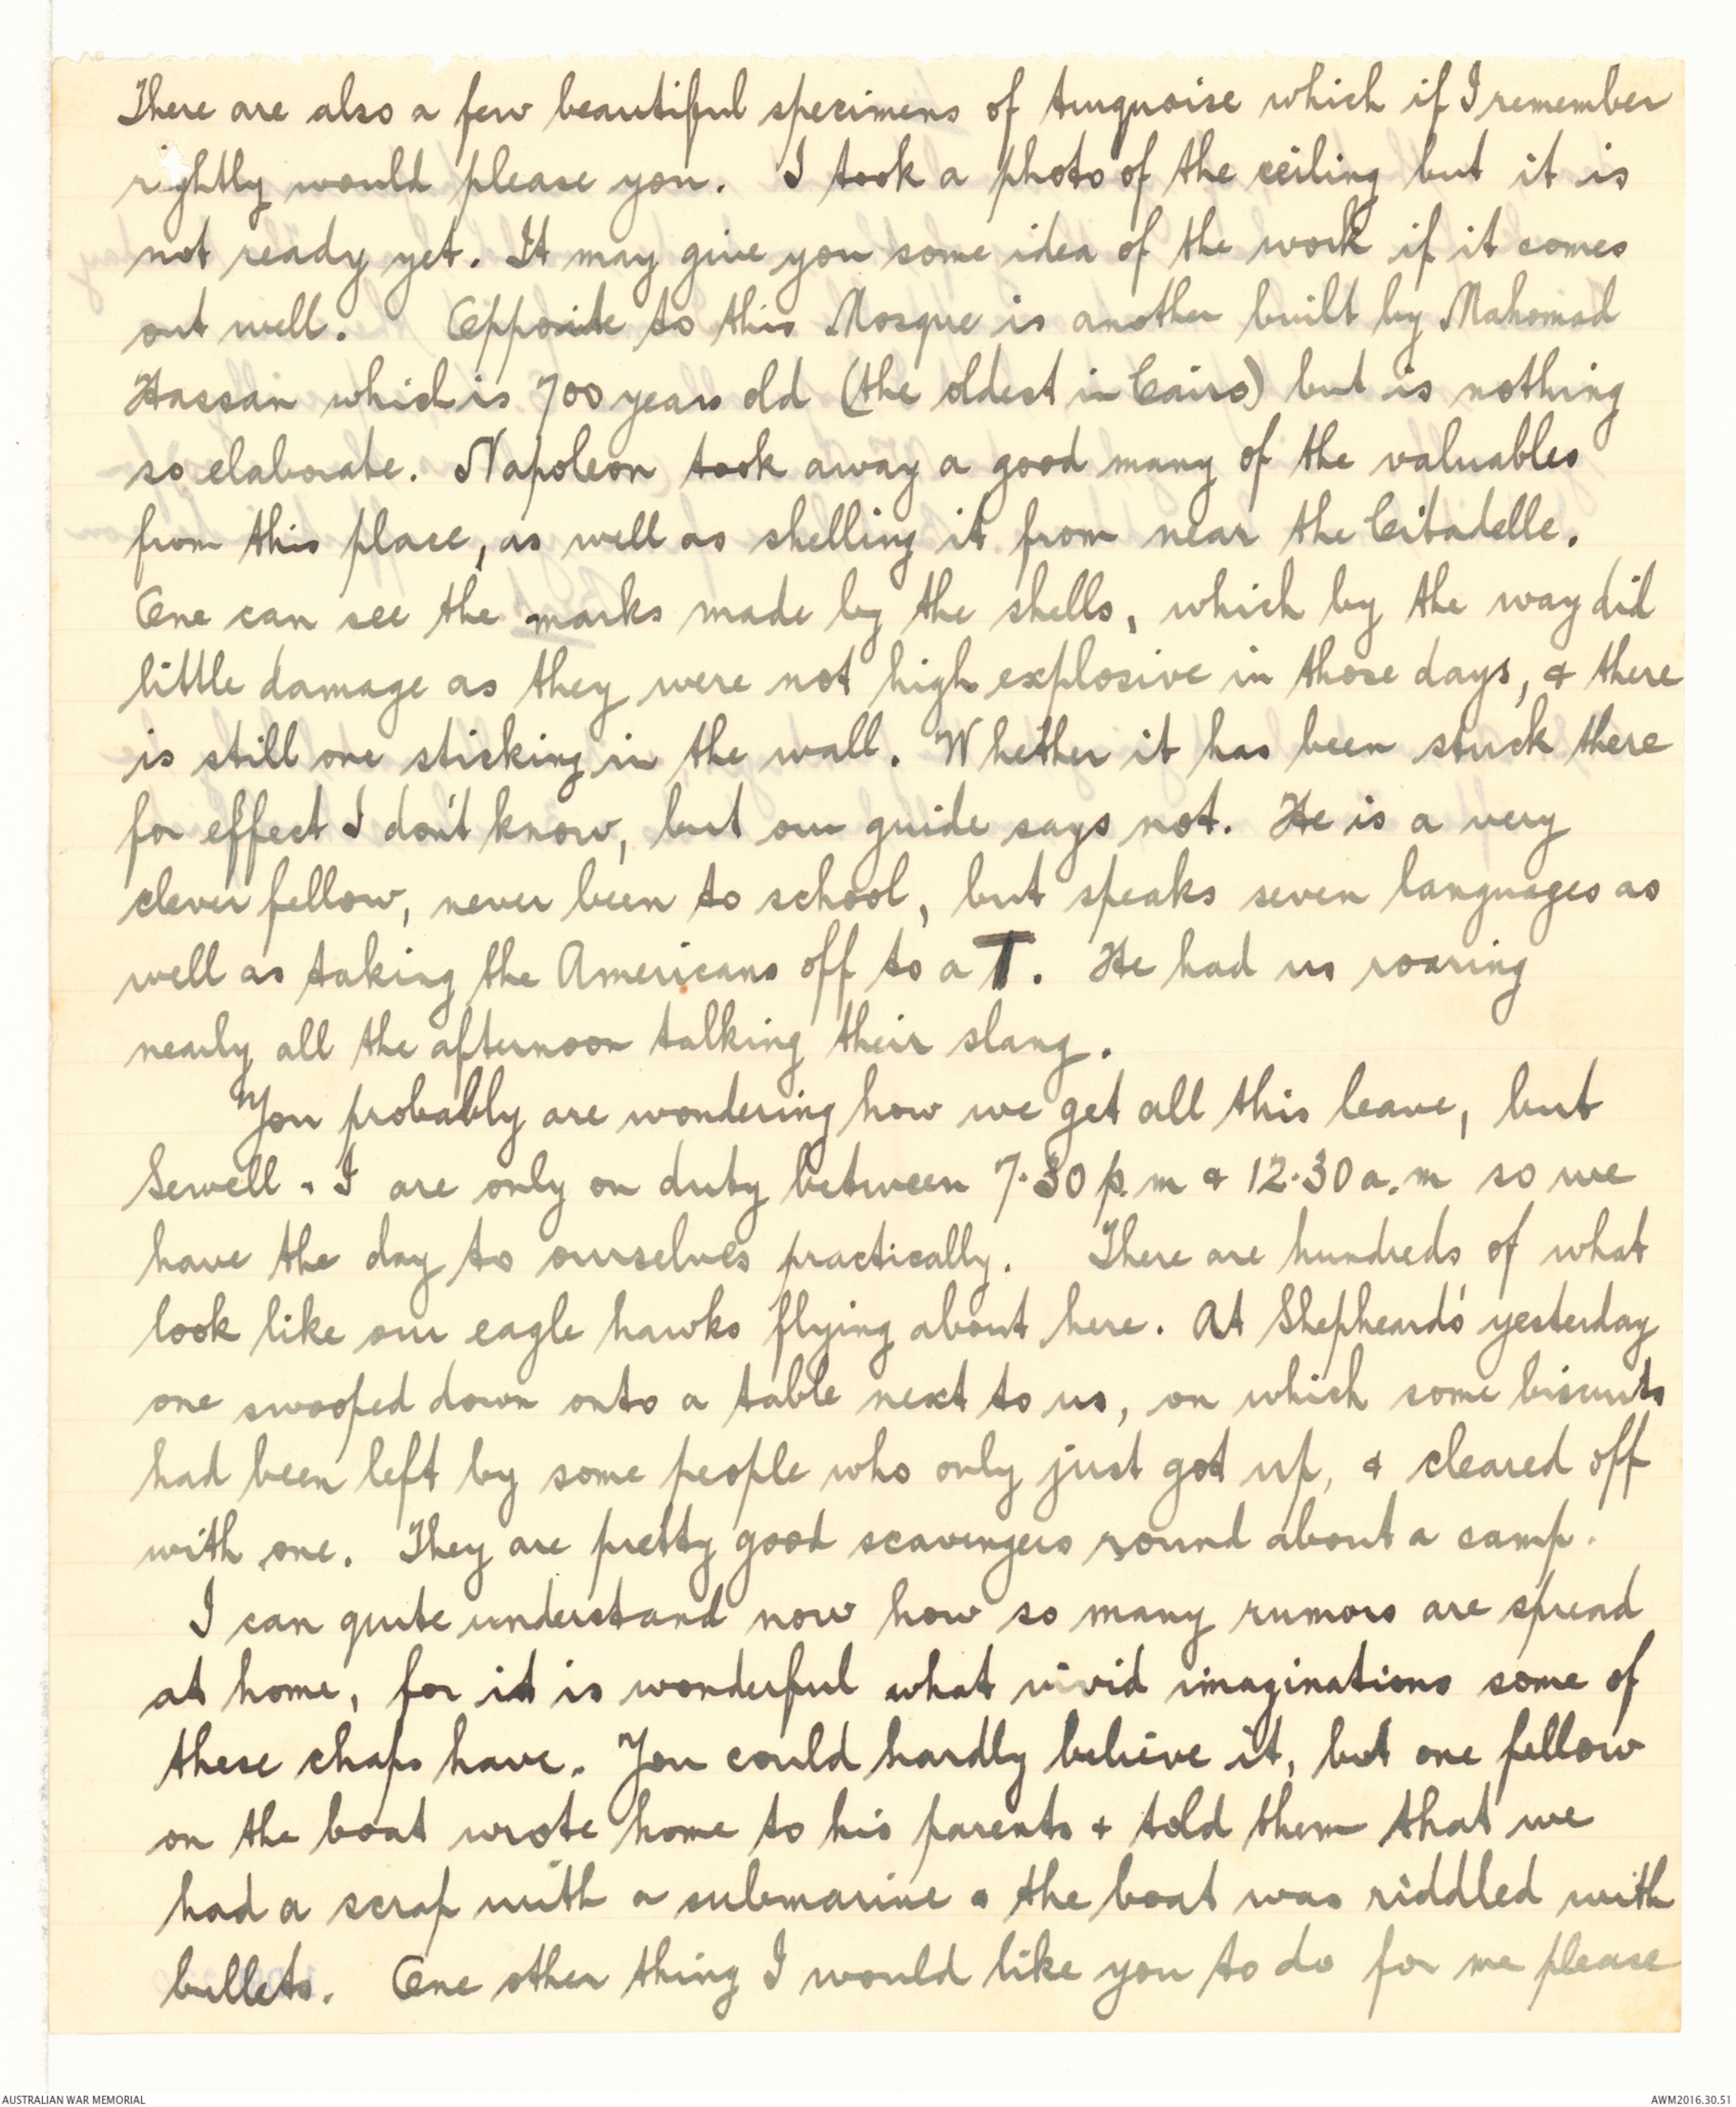 There are also a few beautiful specimens of turquoise which if I remember
rightly would please you. I took a photo of the ceiling but it is
not ready yet. It may give you some idea of the work if it comes
out well. Opposite to this Mosque is another built by Mahomad
Hassan which is 700 years old (the oldest in Cairo) but is nothing
so elaborate. Napoleon took away a good many of the valuables
from this place, as well as shelling it from near the Citadelle.
One can see the marks made by the shells, which by the way did
little damage as they were not high explosive in those days, & there
is still one sticking in the wall. Whether it has been stuck there
for effect I don't know, but our guide says not. He is a very
clever fellow, never been to school, but speaks seven languages as
well as taking the Americans off to a T. He had us roaring
nearly all the afternoon talking their slang.
You probably are wondering how we get all this leave, but
Sewell & I are only on duty between 7.30 p.m & 12.30 a.m so we
have the day to ourselves practically. There are hundreds of what
look like our eagle hawks flying about here. At Shepheard's yesterday
one swooped down onto a table next to us, on which some biscuits
had been left by some people who only just got up, & cleared off
with one. They are pretty good scavengers round about a camp.
I can quite understand now how so many rumors are spread
at home, for it is wonderful what vivid imaginations some of
these chaps have. You could hardly believe it, but one fellow
on the boat wrote home to his parents & told them that we
had a scrap with a submarine & the boat was riddled with
bullets. One other thing I would like you to do for me please
AUSTRALIAN WAR MEMORIAL
AWM2016.30.51